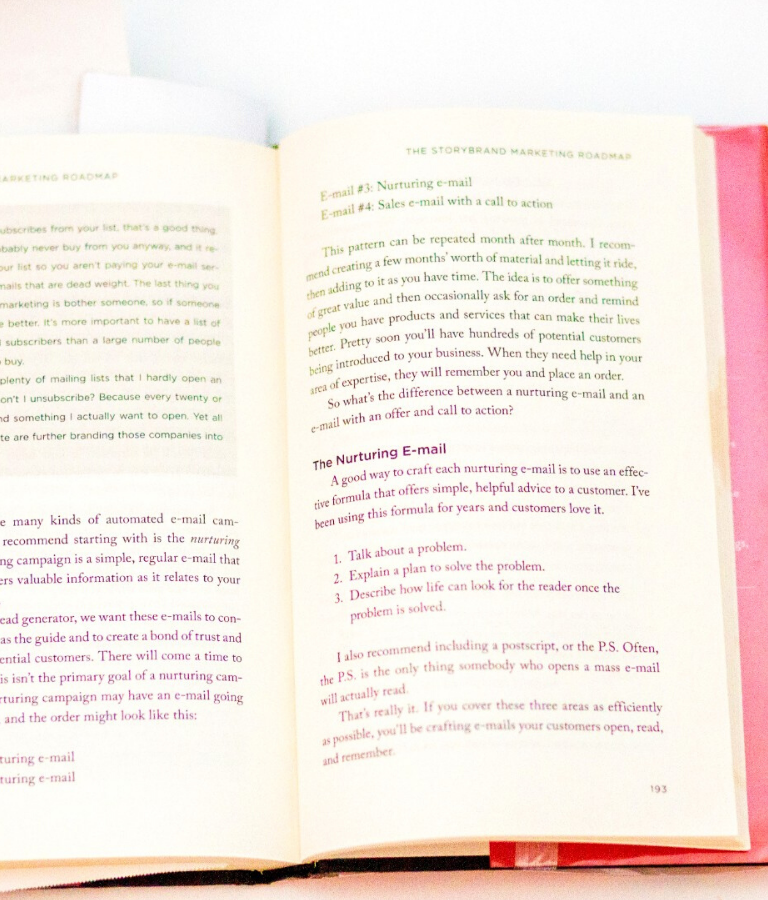 MARKETING ROADMAP
ubscribes from your list, that's a good thing.
bably never buy from you anyway, and it re-
our list so you aren't paying your e-mail ser-
mails that are dead weight. The last thing you
marketing is bother someone, so if someone
e better. It's more important to have a list of
subscribers than a large number of people
buy.
plenty of mailing lists that I hardly open an
on't I unsubscribe? Because every twenty or
nd something I actually want to open. Yet all
te are further branding those companies into
e many kinds of automated e-mail cam-
recommend starting with is the nurturing
ng campaign is a simple, regular e-mail that
ers valuable information as it relates to your
ead generator, we want these e-mails to con-
as the guide and to create a bond of trust and
ential customers. There will come a time to
is isn't the primary goal of a nurturing cam-
rturing campaign may have an e-mail going
, and the order might look like this:
turing e-mail
turing e-mail
THE STORYBRAND MARKETING ROADMAP
E-mail #3: Nurturing e-mail
E-mail #4: Sales e-mail with a call to action
This pattern can be repeated month after month. I recom-
mend creating a few months' worth of material and letting it ride,
then adding to it as you have time. The idea is to offer something
of great value and then occasionally ask for an order and remind
people you have products and services that can make their lives
better. Pretty soon you'll have hundreds of potential customers
being introduced to your business. When they need help in your
area of expertise, they will remember you and place an order.
So what's the difference between a nurturing e-mail and an
e-mail with an offer and call to action?
The Nurturing E-mail
A good way to craft each nurturing e-mail is to use an effec-
tive formula that offers simple, helpful advice to a customer. I've
been using this formula for years and customers love it.
1. Talk about a problem.
2. Explain a plan to solve the problem.
3. Describe how life can look for the reader once the
problem is solved.
I also recommend including a postscript, or the P.S. Often,
the P.S. is the only thing somebody who opens a mass e-mail
will actually read.
That's really it. If you cover these three areas as efficiently
as possible, you'll be crafting e-mails your customers open, read,
and remember.
193